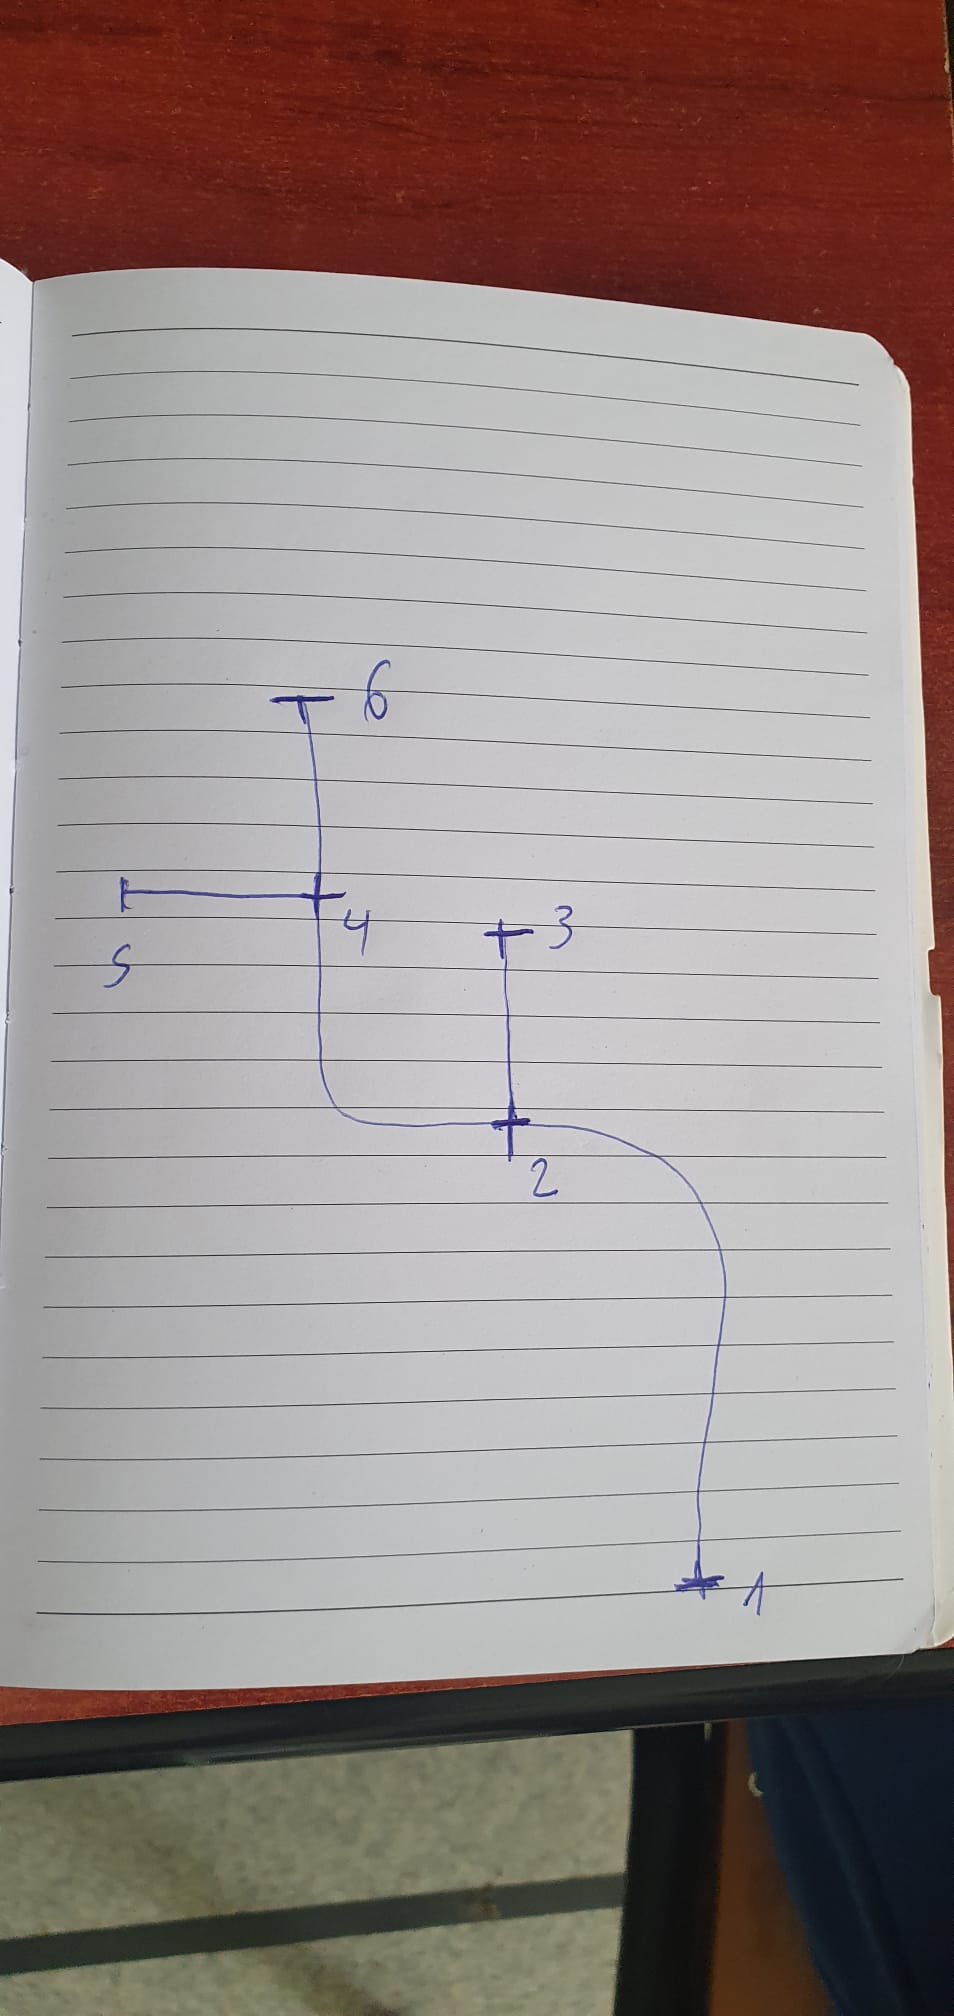 6
4
3
5
2
1